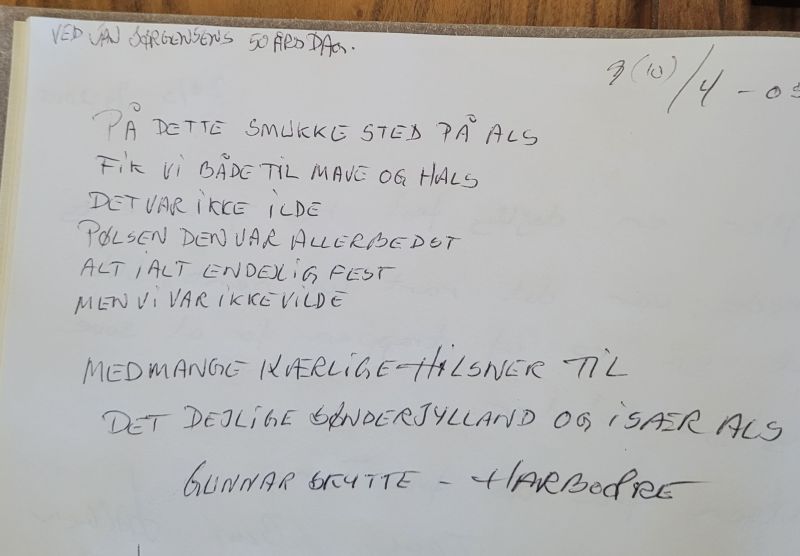 VED JAN JØRGENSENS 50 ÅRS DAG.
9(10)/4-05
PÅ DETTE SMUKKE STED PÅ ALS
FIK VI BÅDE TIL MAVE OG HALS
DET VAR IKKE ILDE
PØLSEN DEN VAR ALLERBEDST
ALT I ALT EN DEJLIG FEST
MEN VI VAR IKKE VILDE
MED MANGE KÆRLIGE HILSNER TIL
DET DEJLIGE SØNDERJYLLAND OG ISÆR ALS
GUNNAR SKYTTE - HARBOØRE